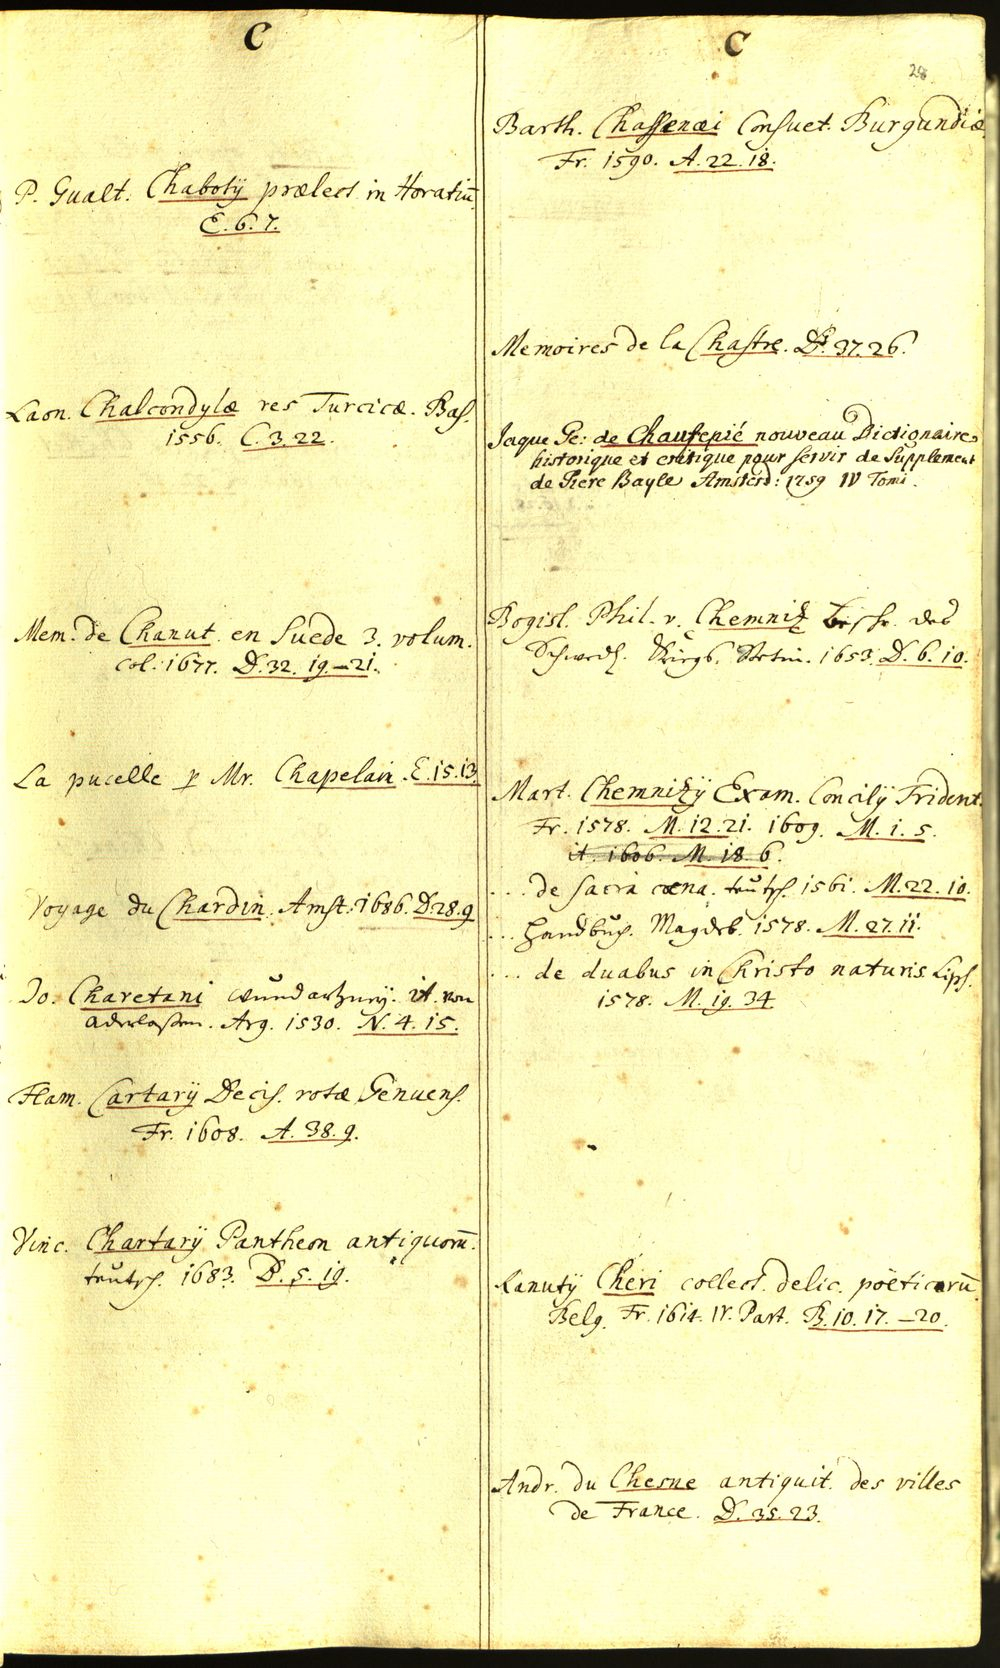 C
P. Gualt. Chabotÿ prælect. in Horatiū
E. 6. 7.
Laon. Chalcondylæ res Turcicæ. Bas.
1556. C. 3. 22.
Mem. de Chanut en Suede 3. volum.
Col. 1677. D. 32. 19.-21.
La pucelle p Mr. Chapelain. E. 15. 13.
Voyage du Chardin. Amst. 1686. D. 28. 9
Jo. Charetani wundartzneÿ. it. von
aderlaßen. Arg. 1530. N. 4. 15.
Flam. Cartarÿ Decis. rotæ Genuens.
Fr. 1608. A. 38. 9.
Vinc. Chartarÿ Pantheon antiquorū.
teutsch. 1683. D. 5. 19.
C
28
Barth. Chassenæi Consuet. Burgundiæ
Fr. 1590. A. 22. 18.
Memoires de la Chastre. D. 37. 26.
Jaque Ge: de Chaufepié nouveau Dictionaire
historique et critique pour servir de Supplement
de Piere Bayle Amsterd: 1759 IV Tomi.
Bogisl. Phil. v. Chemnitz beschr. des
Schwed. Kriegs. Stetin. 1653. D. 6. 10.
Mart. Chemnitzÿ Exam. Concilÿ Trident.
Fr. 1578. M. 12. 21. 1609. M. 1. 5.
it. 1606. M. 18. 6.
... de sacra cœna. teutsch. 1561. M. 22. 10.
... Handbuch. Magdeb. 1578. M. 27. 11.
... de duabus in Christo naturis Lips.
1578. M. 19. 34
Ranutÿ Gheri collect. delic. poëticarū
Belg. Fr. 1614. IV. Part. B. 10. 17.-20.
Andr. du Chesne antiquit. des villes
de France. D. 35. 23.